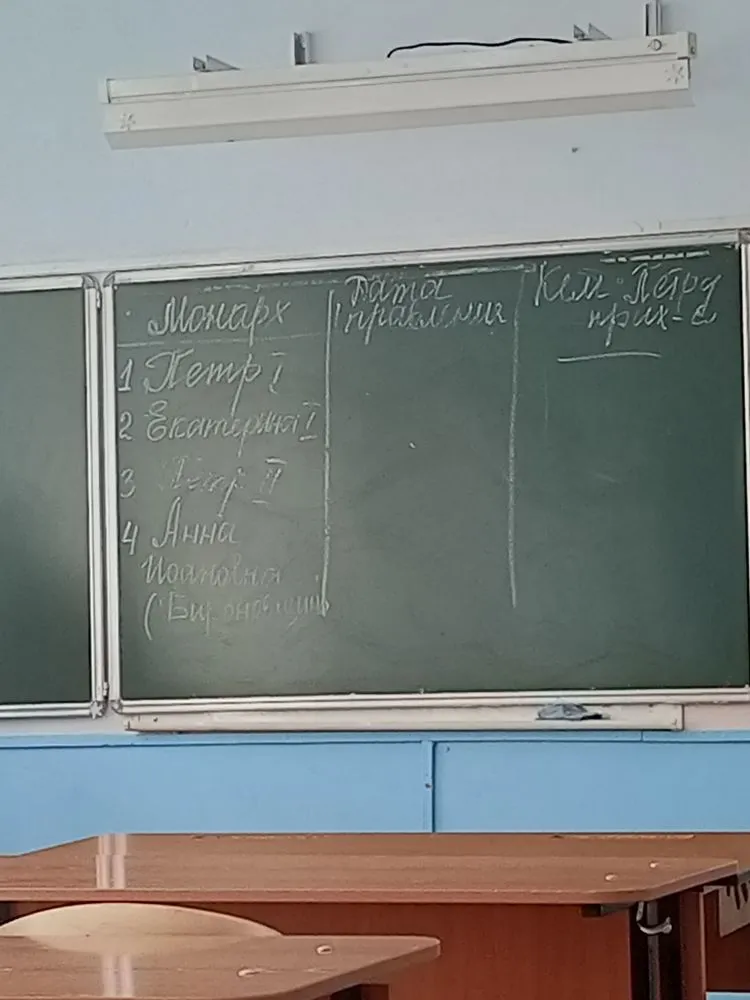 Монарх
Дата
правления
Кем Петру
прих-ся
1 Петр I
2 Екатерина I
3 Петр II
4 Анна
Иоановна
("Бироновщин